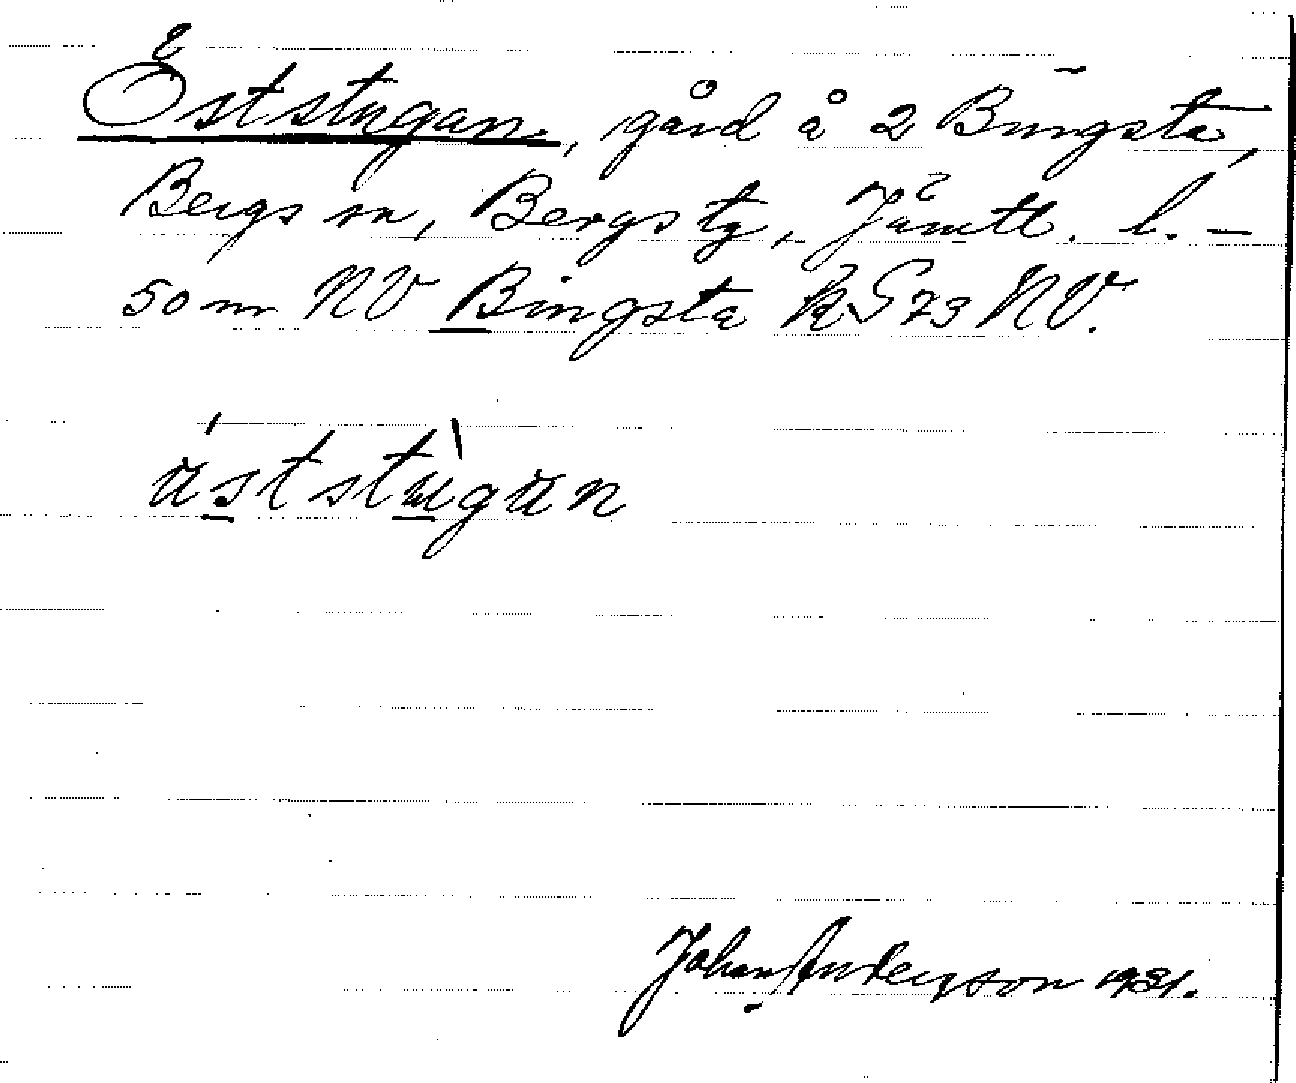 Öststugan, gård å 2 Bingsta,
Bergs sn, Bergs tg, Jämtl. l. –
50 m NV Bingsta k S 73 NV.
äststugan
Johan Anderson 1931.